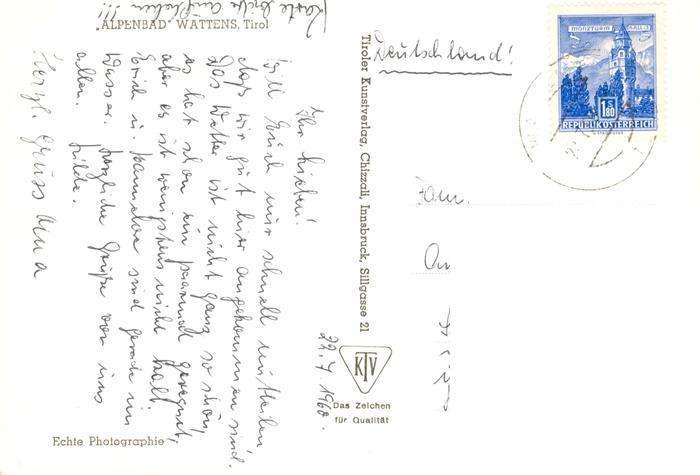 Karte bitte aufheben!!!
"ALPENBAD" WATTENS, Tirol
Ihr Lieben!
Will Euch nur schnell mitteilen
daß wir gut hier angekommen sind.
Das Wetter ist nicht ganz so schön,
es hat schon ein paarmal geregnet,
aber es ist wenigstens nicht kalt.
Erich u. Hannelore sind gerade im
Wasser. Herzliche Grüße von uns
allen. Hilde.
Herzl. Gruss Uma
22.7.1960.
Tiroler Kunstverlag, Chizzali, Innsbruck, Sillgasse 21
KTV
Das Zeichen
für Qualität
Echte Photographie
Deutschland!
MÜNZTURM HALL i.T.
1.80
S
REPUBLIK ÖSTERREICH
Fam.
An